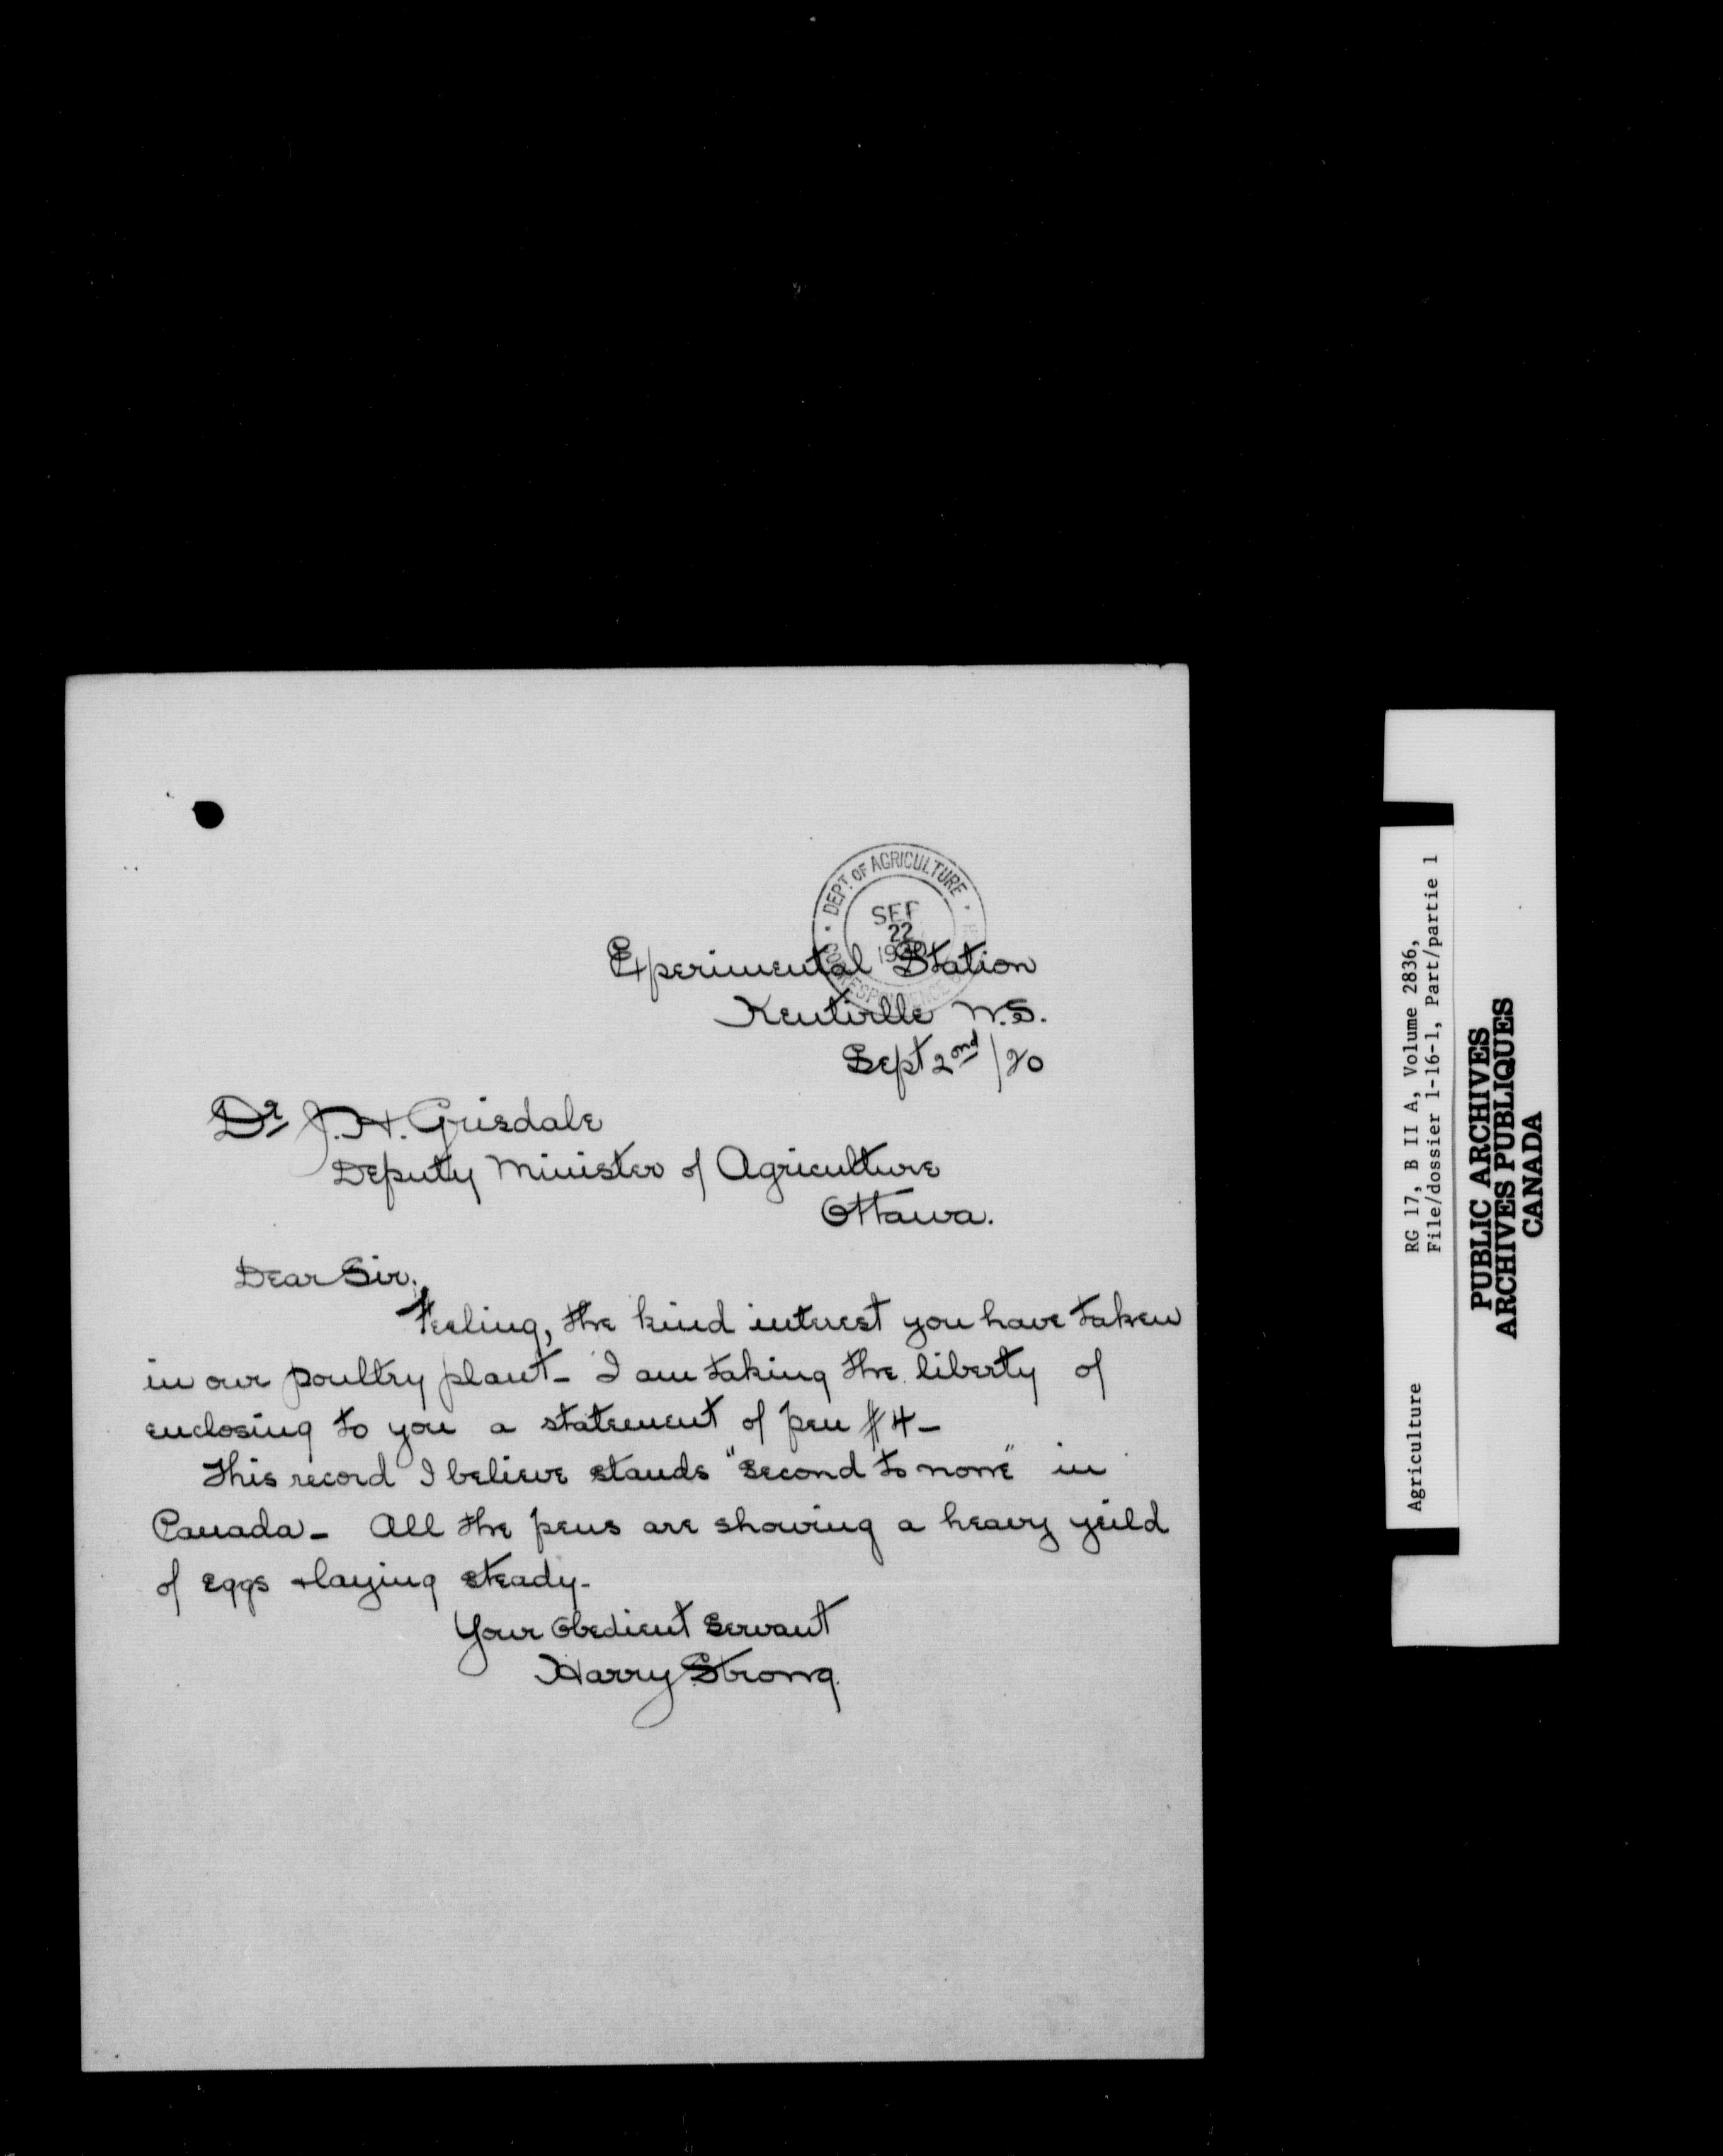 DEPT. OF AGRICULTURE
SEP
22
1920
CORRESPONDENCE
Experimental Station
Kentville N.S.
Sept 2nd /20
Dr J.H. Grisdale
Deputy Minister of Agriculture
Ottawa.
Dear Sir.
Feeling, the kind interest you have taken
in our poultry plant - I am taking the liberty of
enclosing to you a statement of pen #4 -
This record I believe stands "second to none" in
Canada - All the pens are showing a heavy yeild
of eggs + laying steady -
Your obedient servant
Harry Strong.
Agriculture RG 17, B II A, Volume 2836,
File/dossier 1-16-1, Part/partie 1
PUBLIC ARCHIVES
ARCHIVES PUBLIQUES
CANADA